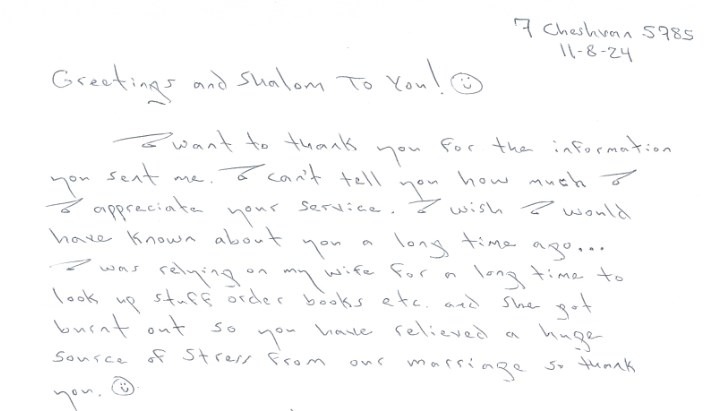 7 Cheshvan 5785
11-8-24
Greetings and Shalom To You! ☺
I want to thank you for the information
you sent me. I can't tell you how much I
I appreciate your service. I wish I would
have known about you a long time ago...
I was relying on my wife for a long time to
look up stuff order books etc. and she got
burnt out so you have relieved a huge
source of stress from our marriage so thank
you. ☺